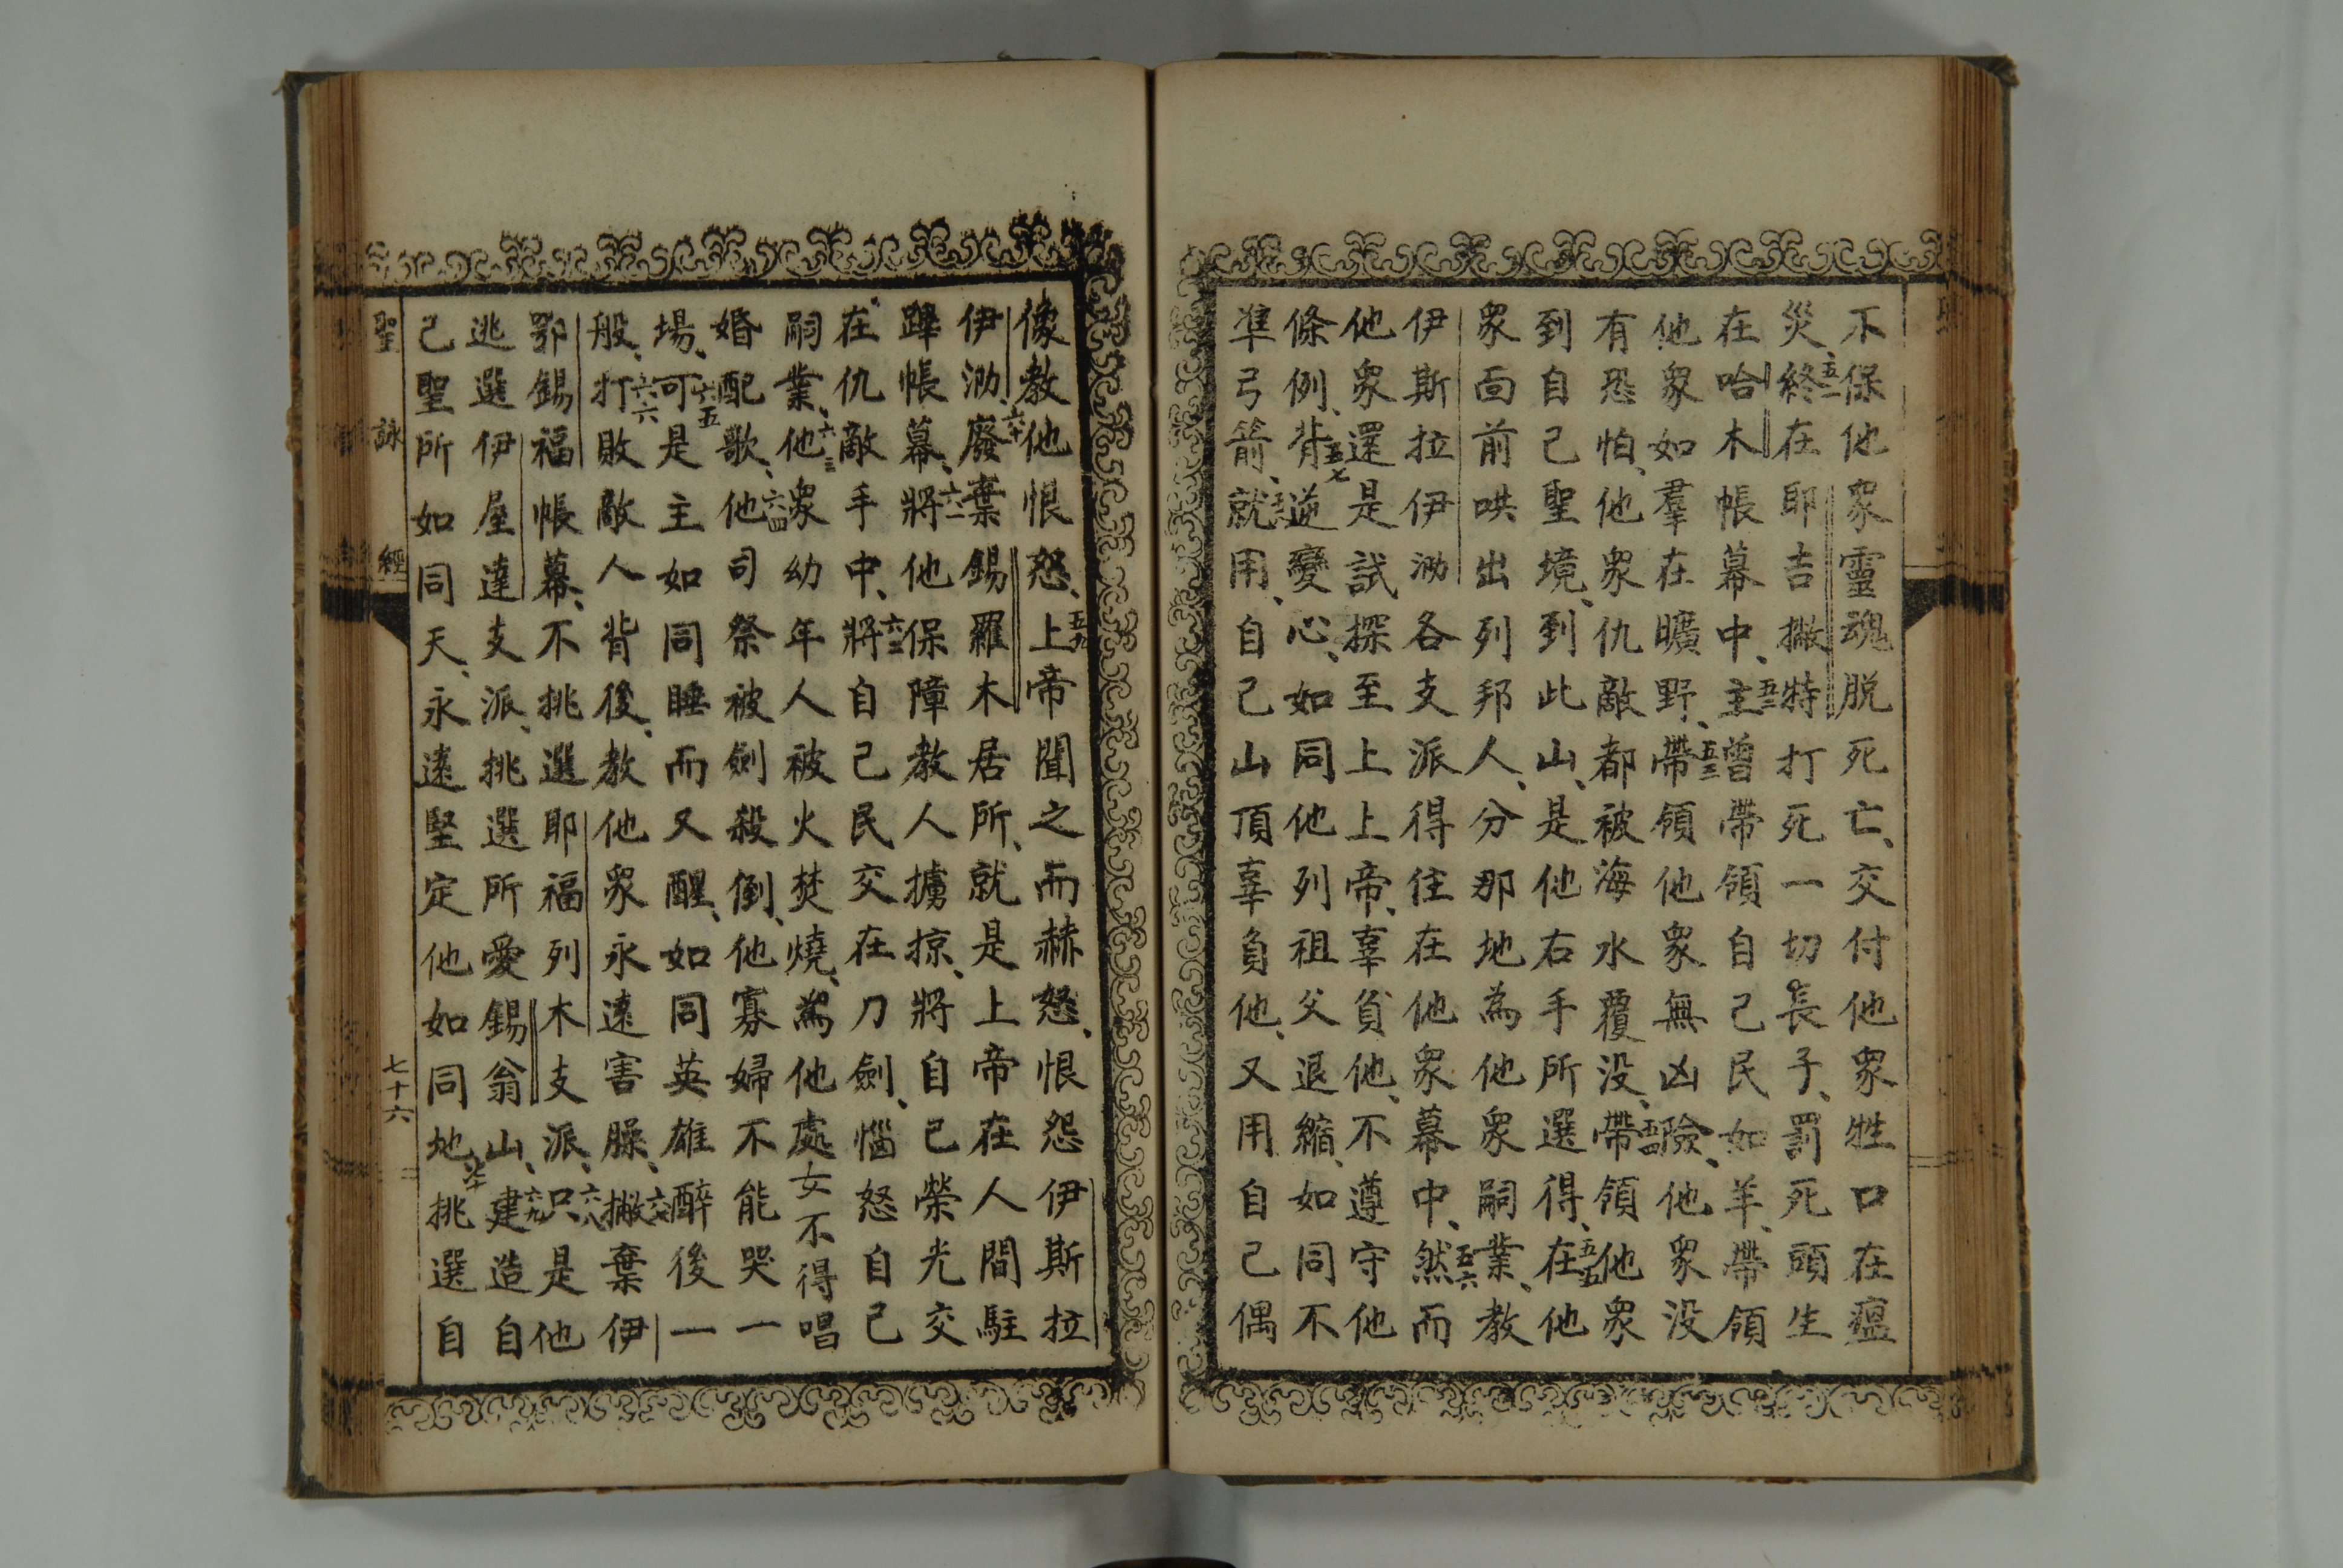 不保他衆靈魂脱死亡、交付他衆牲口在瘟
災、五一終在耶吉撇特打死一切長子、罰死頭生
在哈木帳幕中、五二主曾帶領自己民如羊、帶領
他衆如羣在曠野、五三帶領他衆無凶險、他衆没
有恐怕、他衆仇敵都被海水覆没、五四帶領他衆
到自己聖境、到此山、是他右手所選得、五五在他
衆面前哄出列邦人、分那地為他衆嗣業、教
伊斯拉伊泐各支派得住在他衆幕中、五六然而
他衆還是試探至上上帝、辜負他、不遵守他
條例、五七背逆變心、如同他列祖父退縮、如同不
準弓箭、就用、自己山頂辜負他、又用自己偶
像教他恨怒、五九上帝聞之而赫怒、恨怨伊斯拉
伊泐、六十廢棄錫羅木居所、就是上帝在人間駐
蹕帳幕、六一將他保障教人擄掠、將自己榮光交
在仇敵手中、六二將自己民交在刀劍、惱怒自己
嗣業、六三他衆幼年人被火焚燒、為他處女不得唱
婚配歌、六四他司祭被劍殺倒、他寡婦不能哭一
場、六五可是主如同睡而又醒、如同英雄醉後一
般、六六打敗敵人背後、教他衆永遠害臊、六七撇棄伊
鄂錫福帳幕、不挑選耶福列木支派、六八只是他
逃選伊屋達支派、挑選所愛錫翁山、六九建造自
己聖所如同天、永遠堅定他如同地、七十挑選自
聖詠經
七十六